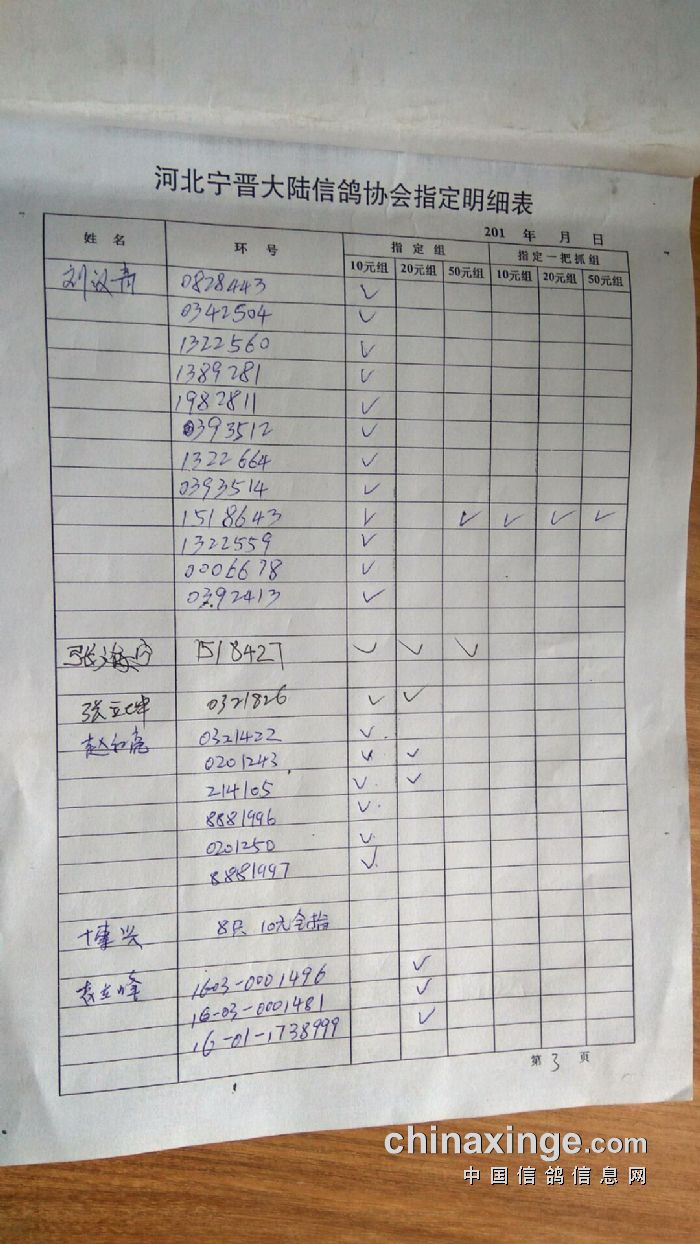 河北宁晋大陆信鸽协会指定明细表
201 年 月 日
姓名 环号 指定组 指定一把抓组
10元组 20元组 50元组 10元组 20元组 50元组
刘议青 0828443 ✓
0342504 ✓
1322560 ✓
1389281 ✓
1982811 ✓
0393512 ✓
1322664 ✓
0393514 ✓
1518643 ✓ ✓ ✓ ✓ ✓
1322559 ✓
0006678 ✓
0392413 ✓
1518427 ✓ ✓ ✓
张立坤 0321826 ✓ ✓
赵红亮 0321422 ✓
0201243 ✓ ✓
214105 ✓ ✓
8881996 ✓
0201250 ✓
8881997 ✓
8只 10元全指
袁立峰 1603-0001496 ✓
16-03-0001481 ✓
16-01-1738999 ✓
第 3 页
chinaxinge.com
中国信鸽信息网